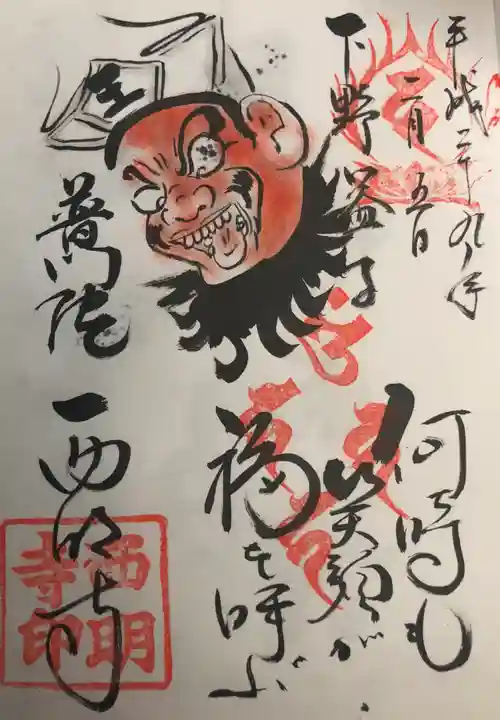 平成二十九年
二月五日
下野益子
何時も
笑顔が
福を呼ぶ
王
普門院
西明寺
西明
寺印